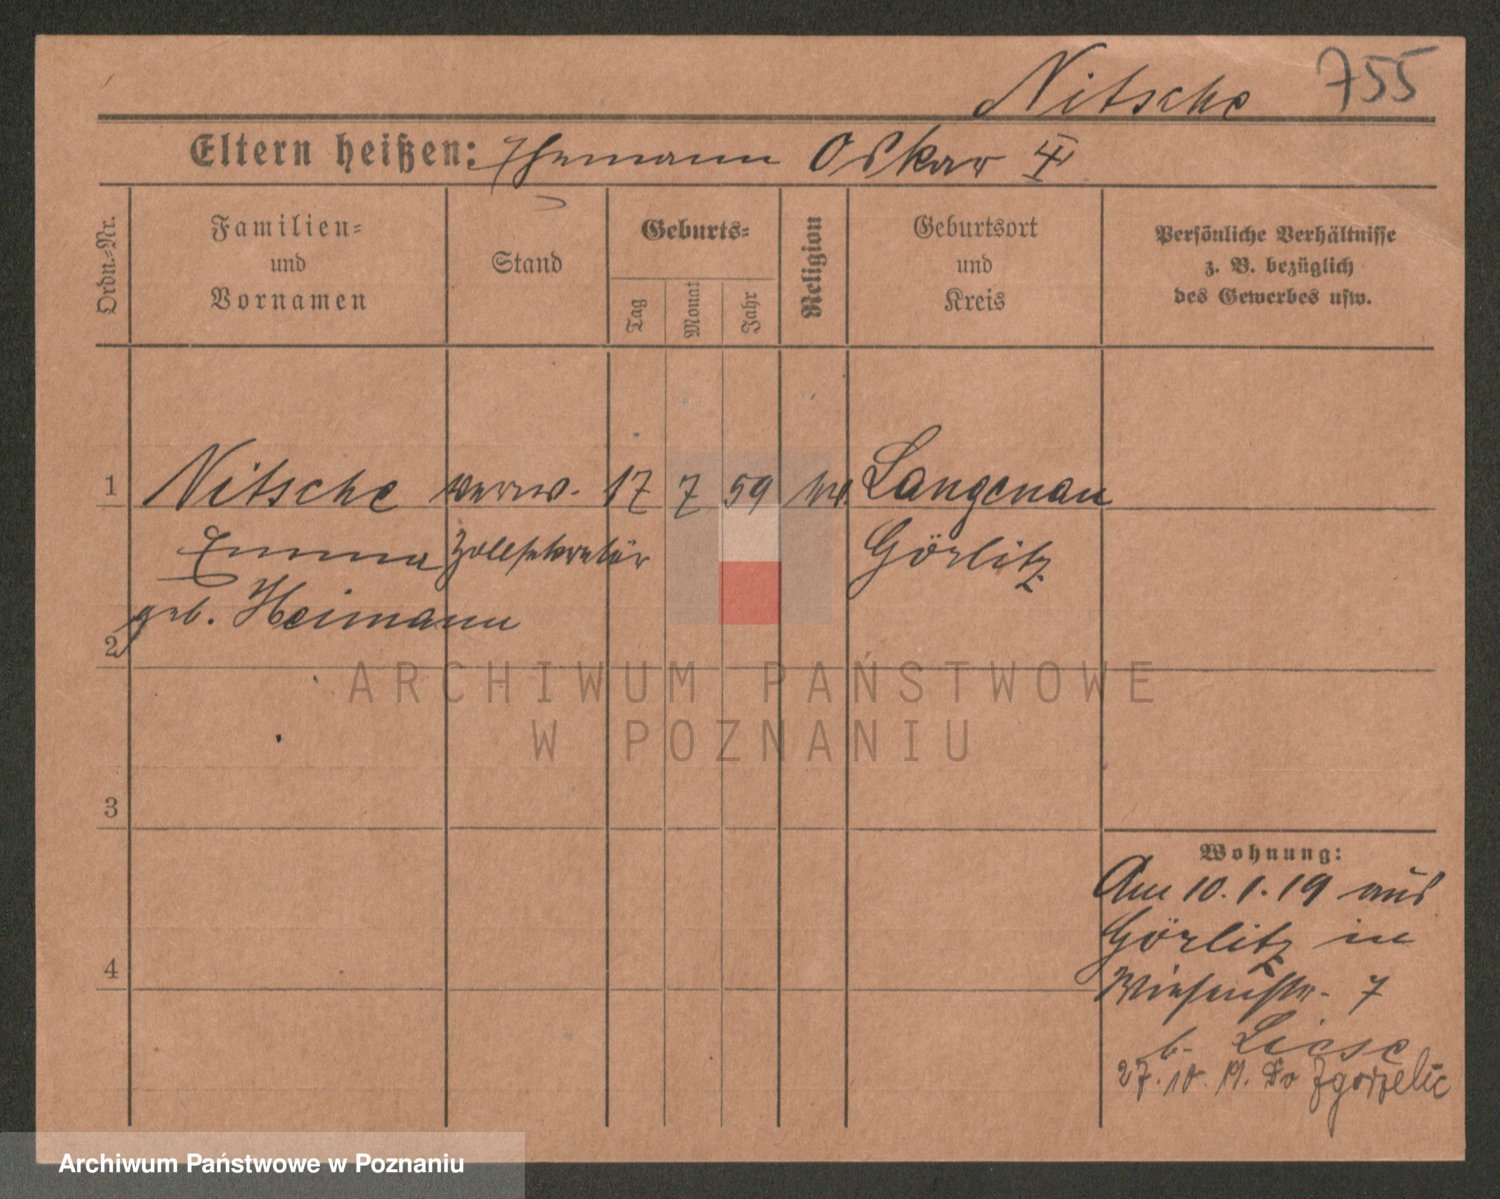 Nitsche 755
Eltern heißen: Ehemann Oskar
Ordn.-Nr.
Familien-
und
Vornamen
Stand
Geburts-
Tag
Monat
Jahr
Religion
Geburtsort
und
Kreis
Persönliche Verhältnisse
z. B. bezüglich
des Gewerbes usw.
1 Nitsche verw. 17 7 59 Langenau
Emma Zollsekretär Görlitz
geb. Heimann
2
3
4
Wohnung:
Am 10.1.19 aus
Görlitz in
Wiesenstr. 7
b. Liese
27.10.19. Do Zgorzelic
ARCHIWUM PAŃSTWOWE
W POZNANIU
Archiwum Państwowe w Poznaniu